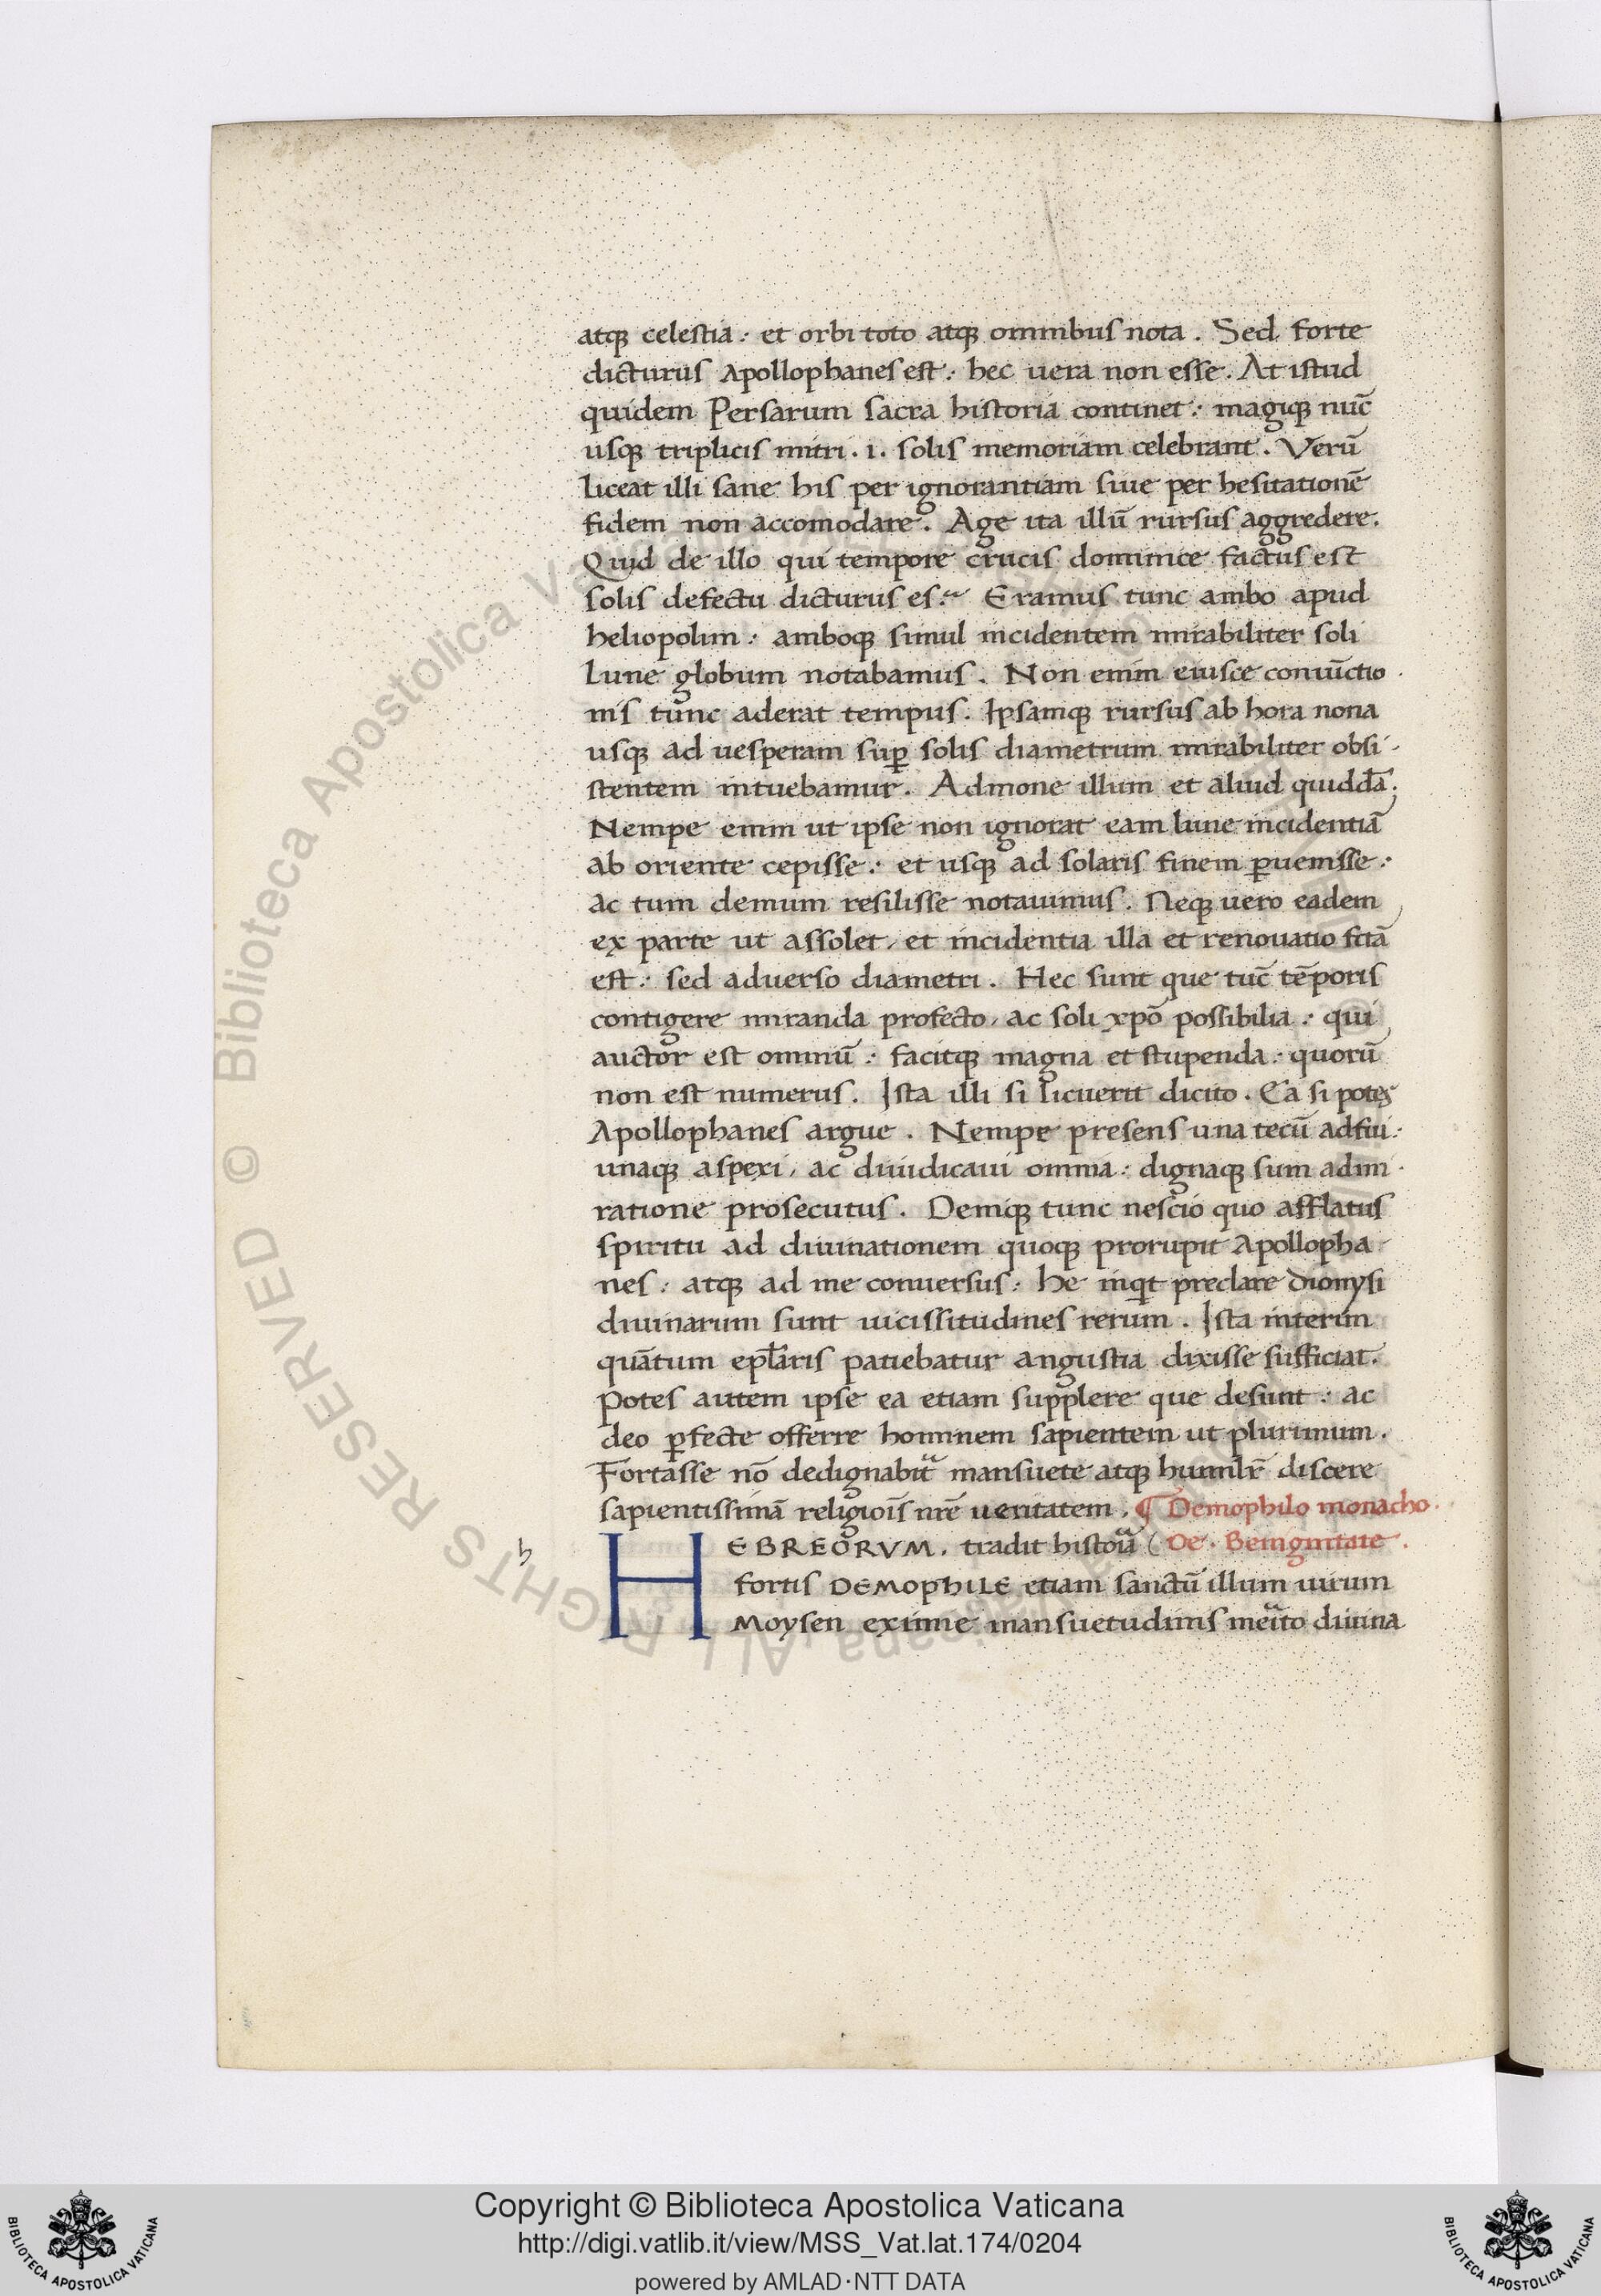 atqꝫ celestia: et orbi toto atqꝫ omnibus nota. Sed forte
dicturus Apollophanes est: hec uera non esse. At istud
quidem Persarum sacra historia continet: magiqꝫ nūc
usqꝫ triplicis mitri .i. solis memoriam celebrant. Verū
liceat illi sane his per ignorantiam siue per hesitationē
fidem non accomodare. Age ita illū rursus aggredere.
Quid de illo qui tempore crucis dominice factus est
solis defectu dicturus es? Eramus tunc ambo apud
heliopolim: amboqꝫ simul incidentem mirabiliter soli
lune globum notabamus. Non enim eiusce coniūctio
nis tunc aderat tempus. Ipsamqꝫ rursus ab hora nona
usqꝫ ad uesperam sup̱ solis diametrum mirabiliter obsi-
stentem intuebamur. Admone illum et aliud quiddā.
Nempe enim ut ipse non ignorat eam lune incidentiā
ab oriente cepisse: et usqꝫ ad solaris finem ꝑuenisse:
ac tum demum resilisse notauimus. Neqꝫ uero eadem
ex parte ut assolet, et incidentia illa et renouatio fctā
est: sed aduerso diametri. Hec sunt que tūc tēporis
contigere miranda profecto, ac soli xpō possibilia: qui
auctor est omniū: facitqꝫ magna et stupenda: quorū
non est numerus. Ista illi si licuerit dicito. Ea si potes
Apollophanes argue. Nempe presens una tecū adfui:
unaqꝫ aspexi, ac diiudicaui omnia: dignaqꝫ sum adm-
ratione prosecutus. Deniqꝫ tunc nescio quo afflatus
spiritu ad diuinationem quoqꝫ prorupit Apollopha-
nes: atqꝫ ad me conuersus: he inqͥt preclare Dionysi
diuinarum sunt uicissitudines rerum. Ista interim
quāntum epl̄aris patiebatur angustia dixisse sufficiat.
Potes autem ipse ea etiam supplere que desunt: ac
deo ꝑfecte offerre hominem sapientem ut plurimum.
Fortasse nō dedignabitᷓ mansuete atqꝫ humilr̄ discere
sapientissimā religioīs nrē ueritatem. ¶ Demophilo monacho.
h HEBREORVM. tradit histoᷓia ( De. Benignitate.
fortis DEMOPHILE etiam sanctū illum uirum
Moysen eximie mansuetudinis meᷓito diuina
Copyright © Biblioteca Apostolica Vaticana
http://digi.vatlib.it/view/MSS_Vat.lat.174/0204
powered by AMLAD·NTT DATA
BIBLIOTECA APOSTOLICA VATICANA
BIBLIOTECA APOSTOLICA VATICANA